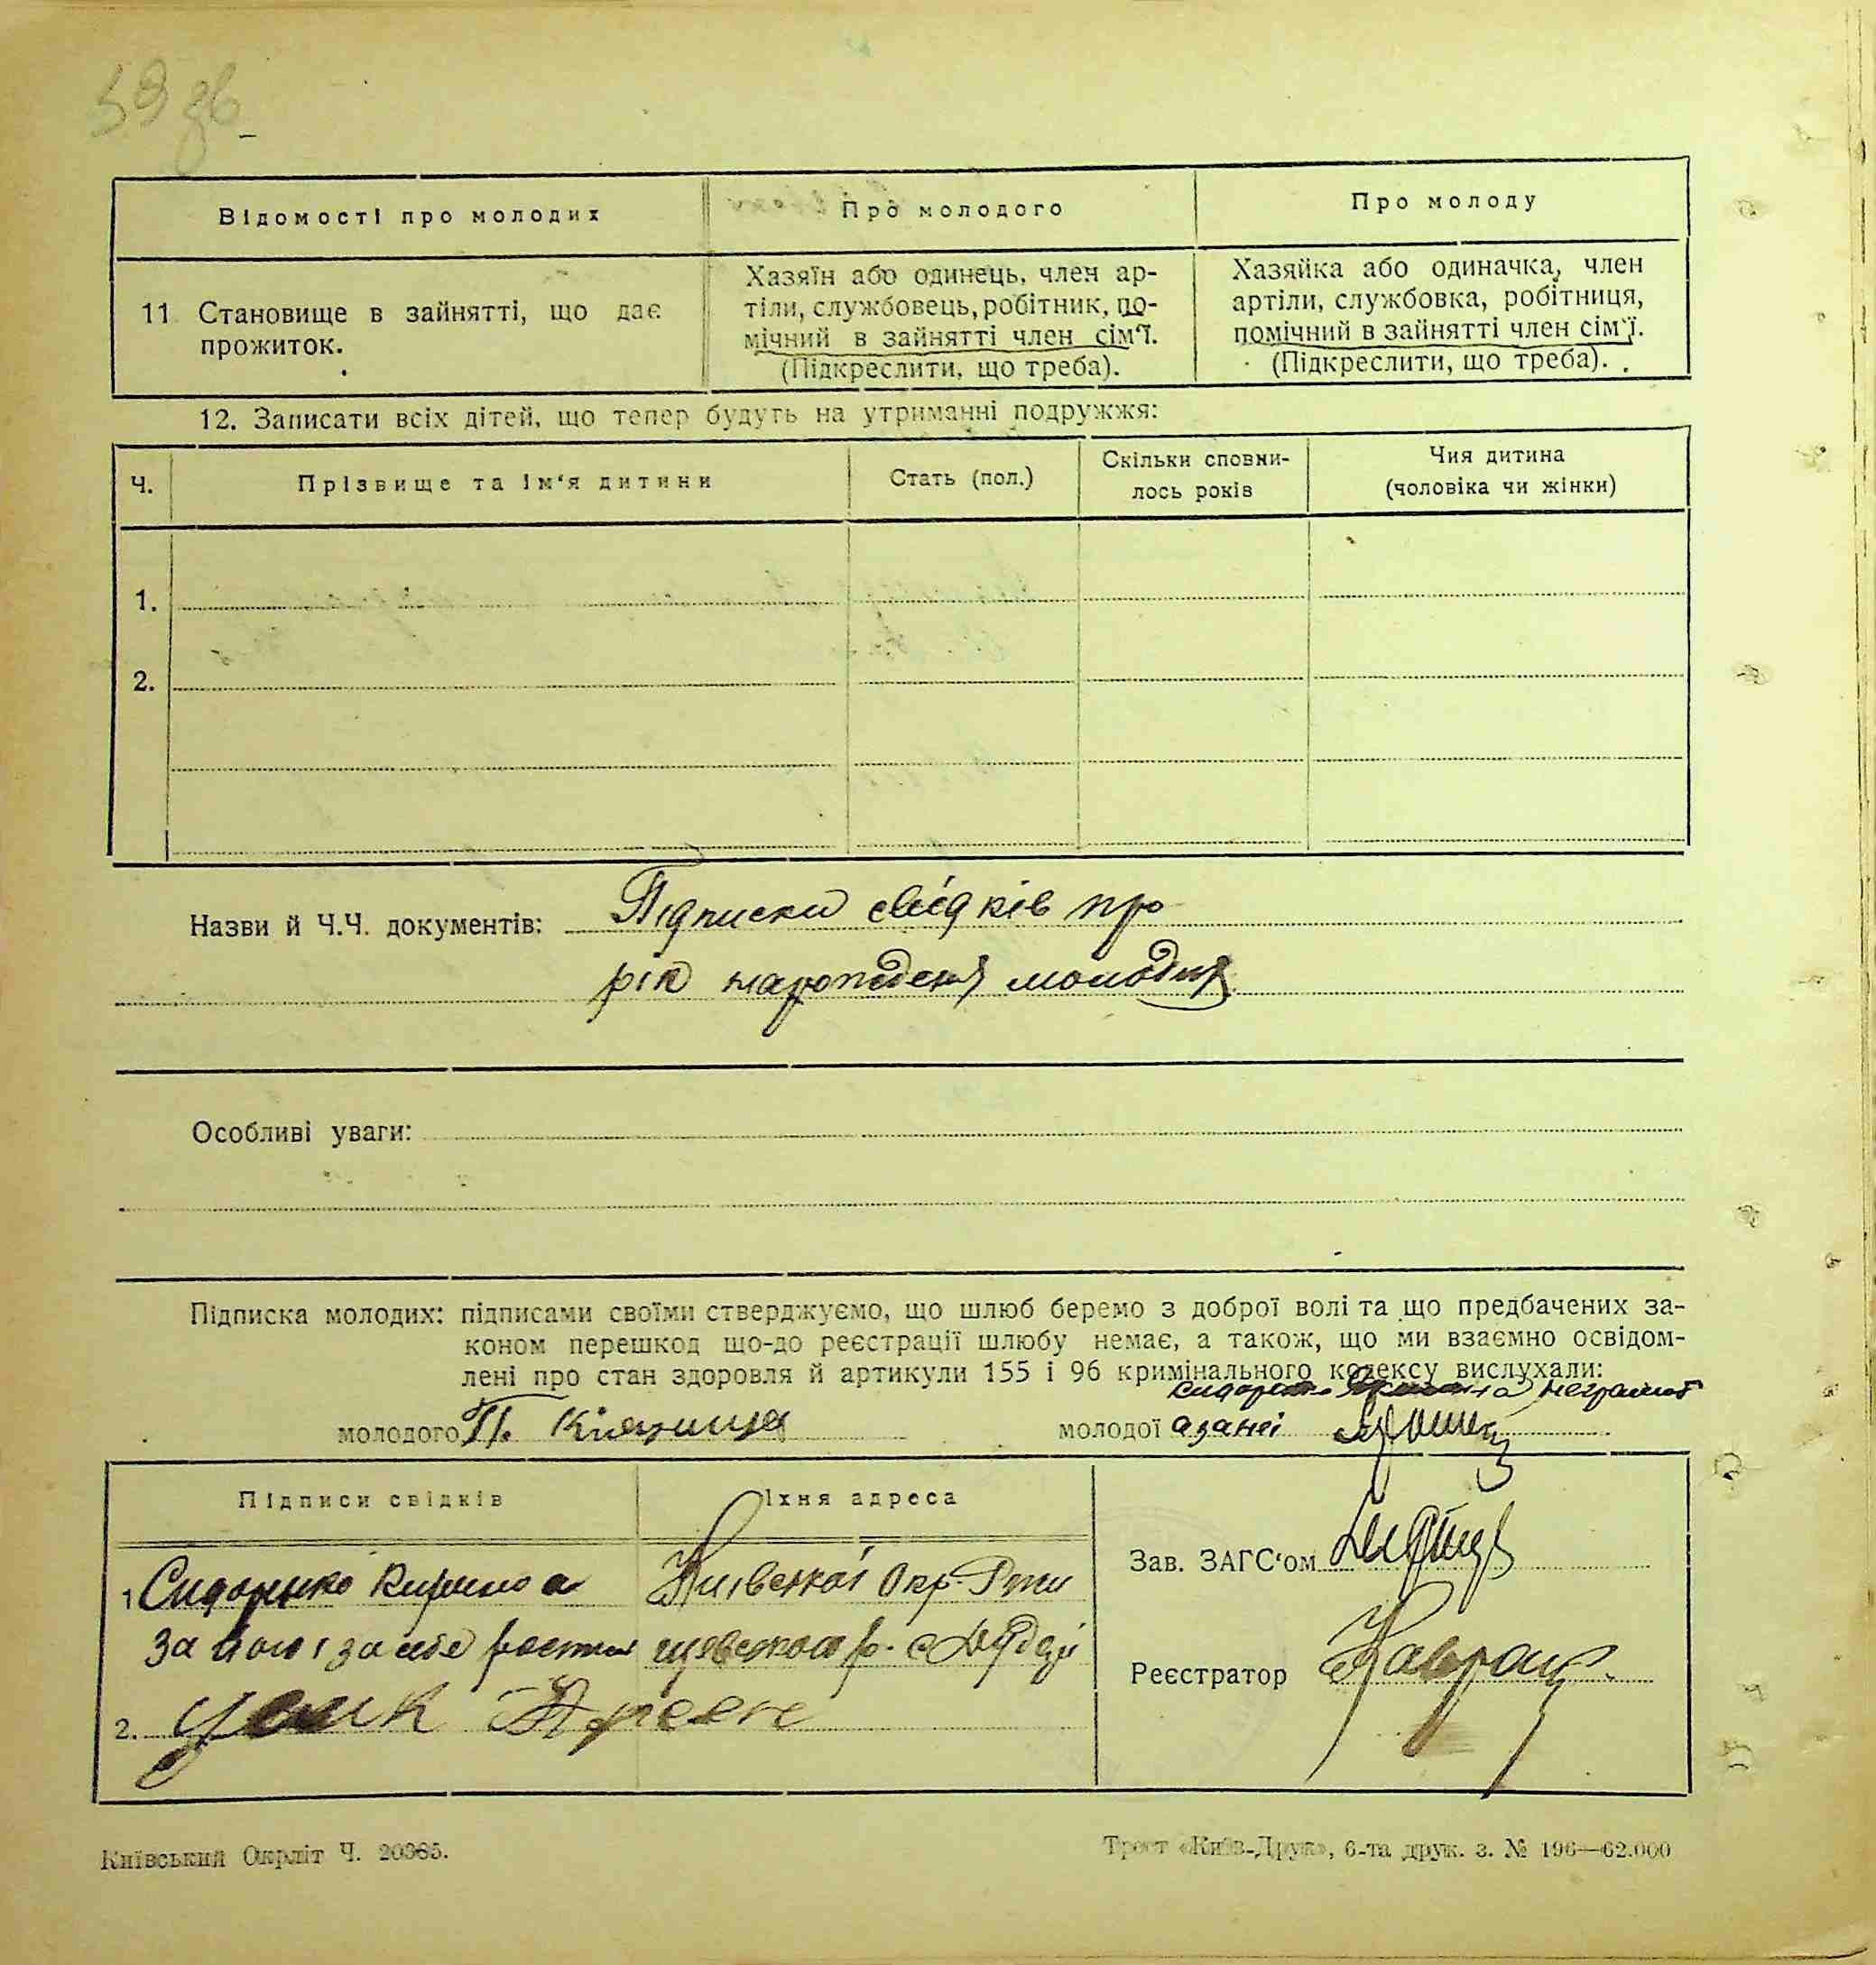 59 зв
Відомості про молодих
Про молодого
Про молоду
11 Становище в зайнятті, що дає
прожиток.
Хазяїн або одинець, член ар-
тіли, службовець, робітник, по-
мічний в зайнятті член сім'ї.
(Підкреслити, що треба).
Хазяйка або одиначка, член
артіли, службовка, робітниця,
помічний в зайнятті член сім'ї.
(Підкреслити, що треба).
12. Записати всіх дітей, що тепер будуть на утриманні подружжя:
Ч.
Прізвище та ім'я дитини
Стать (пол.)
Скільки сповни-
лось років
Чия дитина
(чоловіка чи жінки)
1.
2.
Назви й Ч.Ч. документів: Підписки свідків про
рік народженя молодих
Особливі уваги:
Підписка молодих: підписами своїми стверджуємо, що шлюб беремо з доброї волі та що предбачених за-
коном перешкод що-до реєстрації шлюбу немає, а також, що ми взаємно освідом-
лені про стан здоровля й артикули 155 і 96 кримінального кодексу вислухали:
молодого П.
молодої а за неї
Підписи свідків
Їхня адреса
1 Сидоренко
Київської Окр. Ржи
за його і за себе
щевського р. с.
2.
Зав. ЗАГС'ом
Реєстратор
Київський Окрліт Ч. 20365.
Трест «Київ-Друк», 6-та друк. з. № 196—62.000